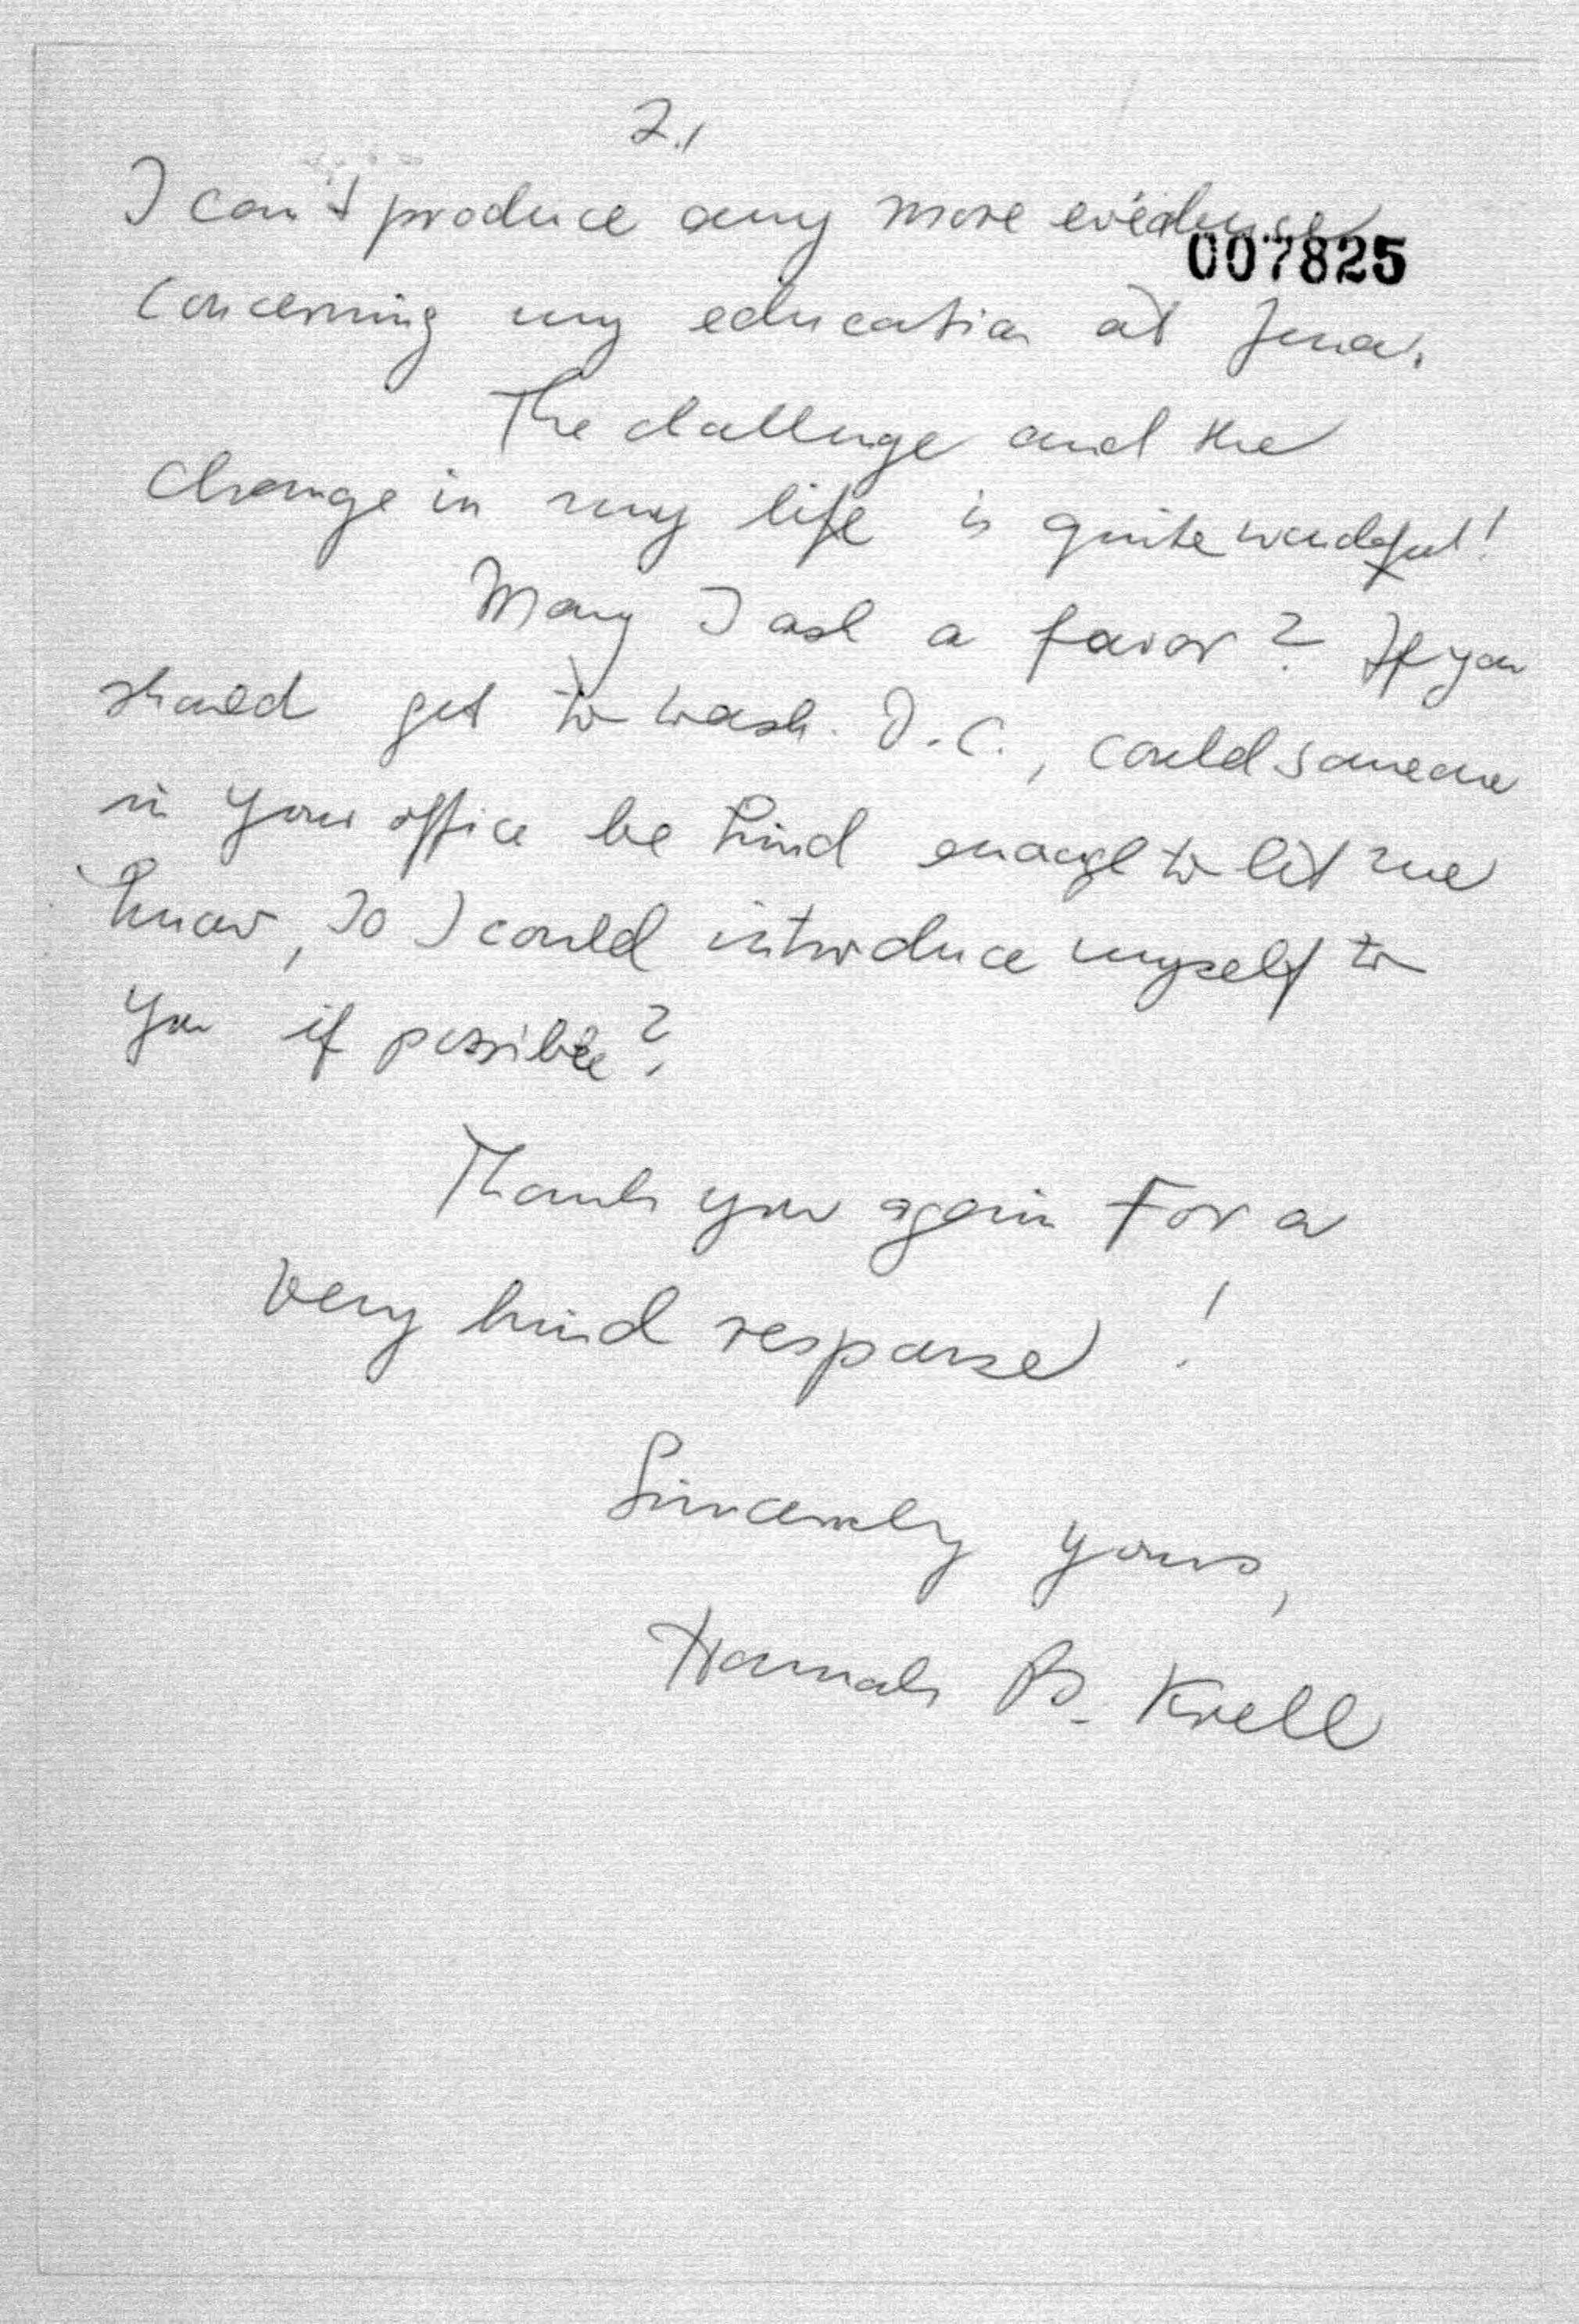 2.,
I can't produce any more evidence
007825
concerning my education at Jena.
The challenge and the
change in my life is quite wonderful!
May I ask a favor? If you
should get to Wash. D.C., could someone
in your office be kind enough to let me
know, so I could introduce myself to
you if possible?
Thank you again for a
very kind response!
Sincerely yours,
Hannah B. Krell